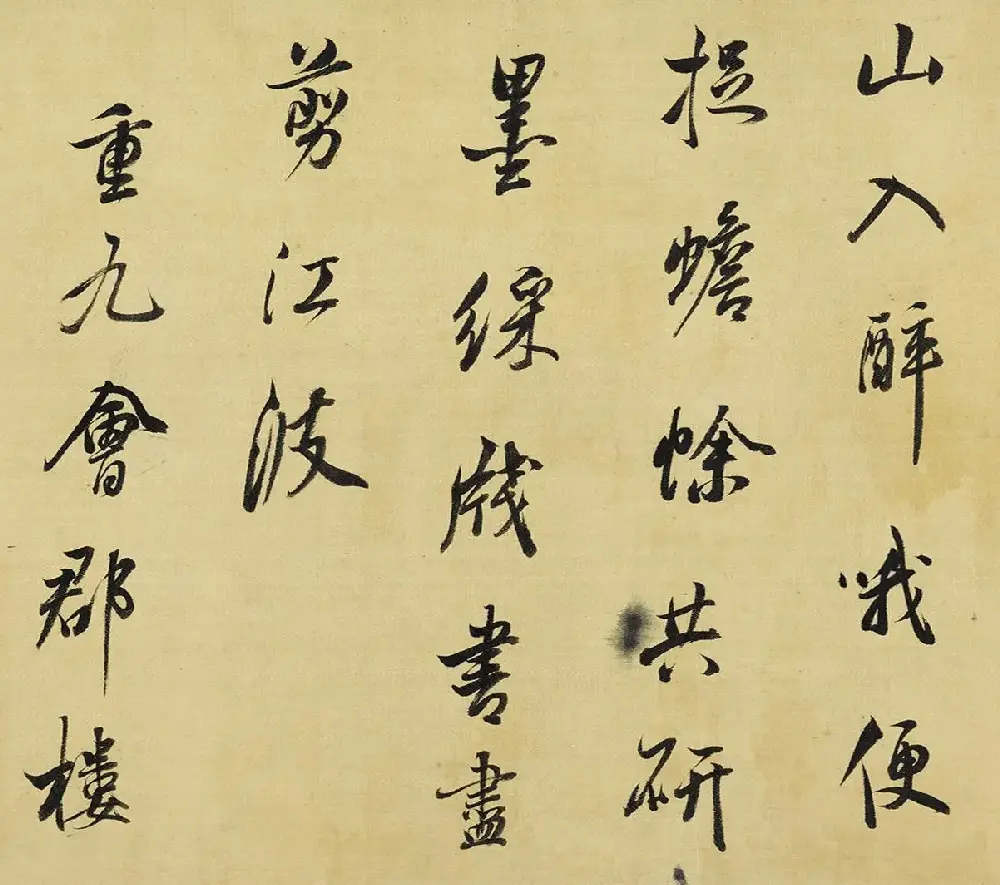 山入醉哦便
捉蟾蜍共研
墨綵牋書盡
剪江波
重九會郡樓